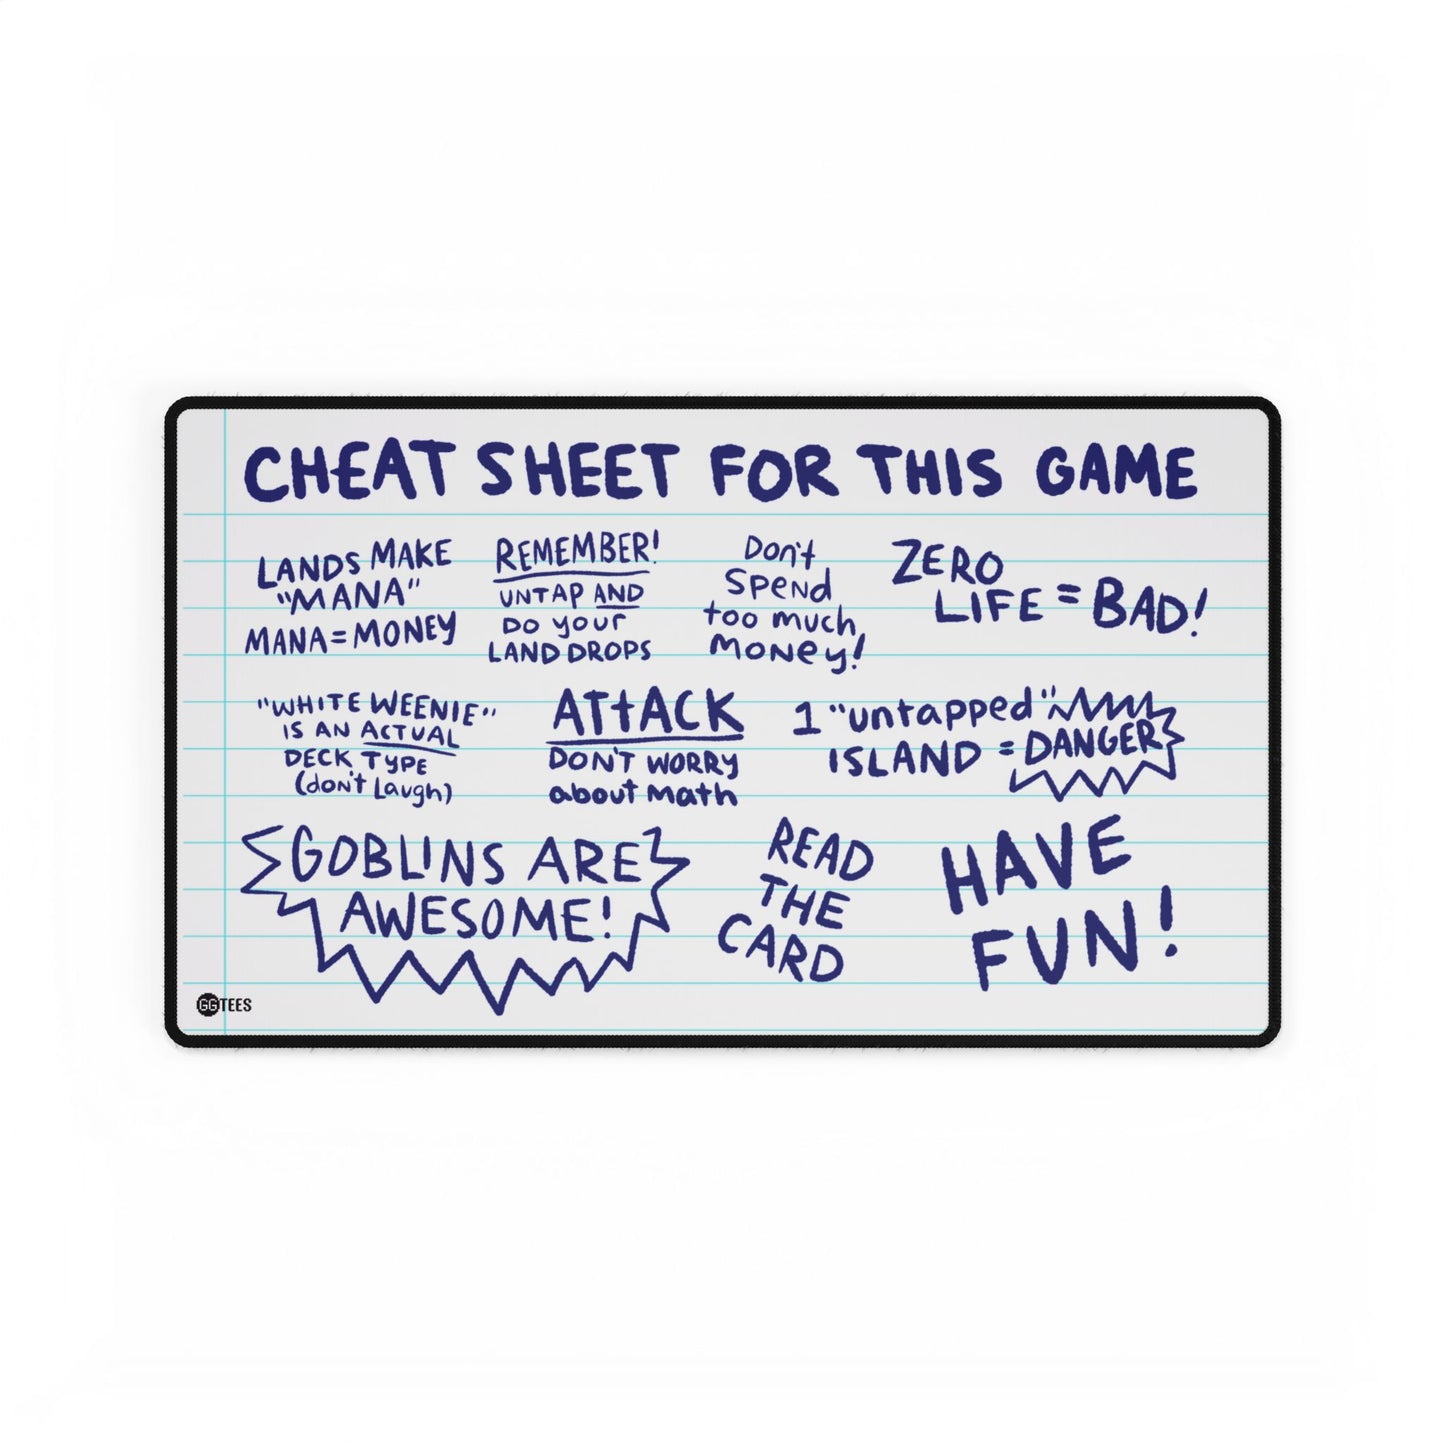 CHEAT SHEET FOR THIS GAME
LANDS MAKE
"MANA"
MANA=MONEY
REMEMBER!
UNTAP AND
DO YOUR
LAND DROPS
Don't
Spend
too much
Money!
ZERO
LIFE = BAD!
"WHITE WEENIE"
IS AN ACTUAL
DECK TYPE
(don't Laugh)
ATtACK
DON'T WORRY
about math
1 "untapped"
ISLAND = DANGER
GOBLINS ARE
AWESOME!
READ
THE
CARD
HAVE
FUN!
GGTEES